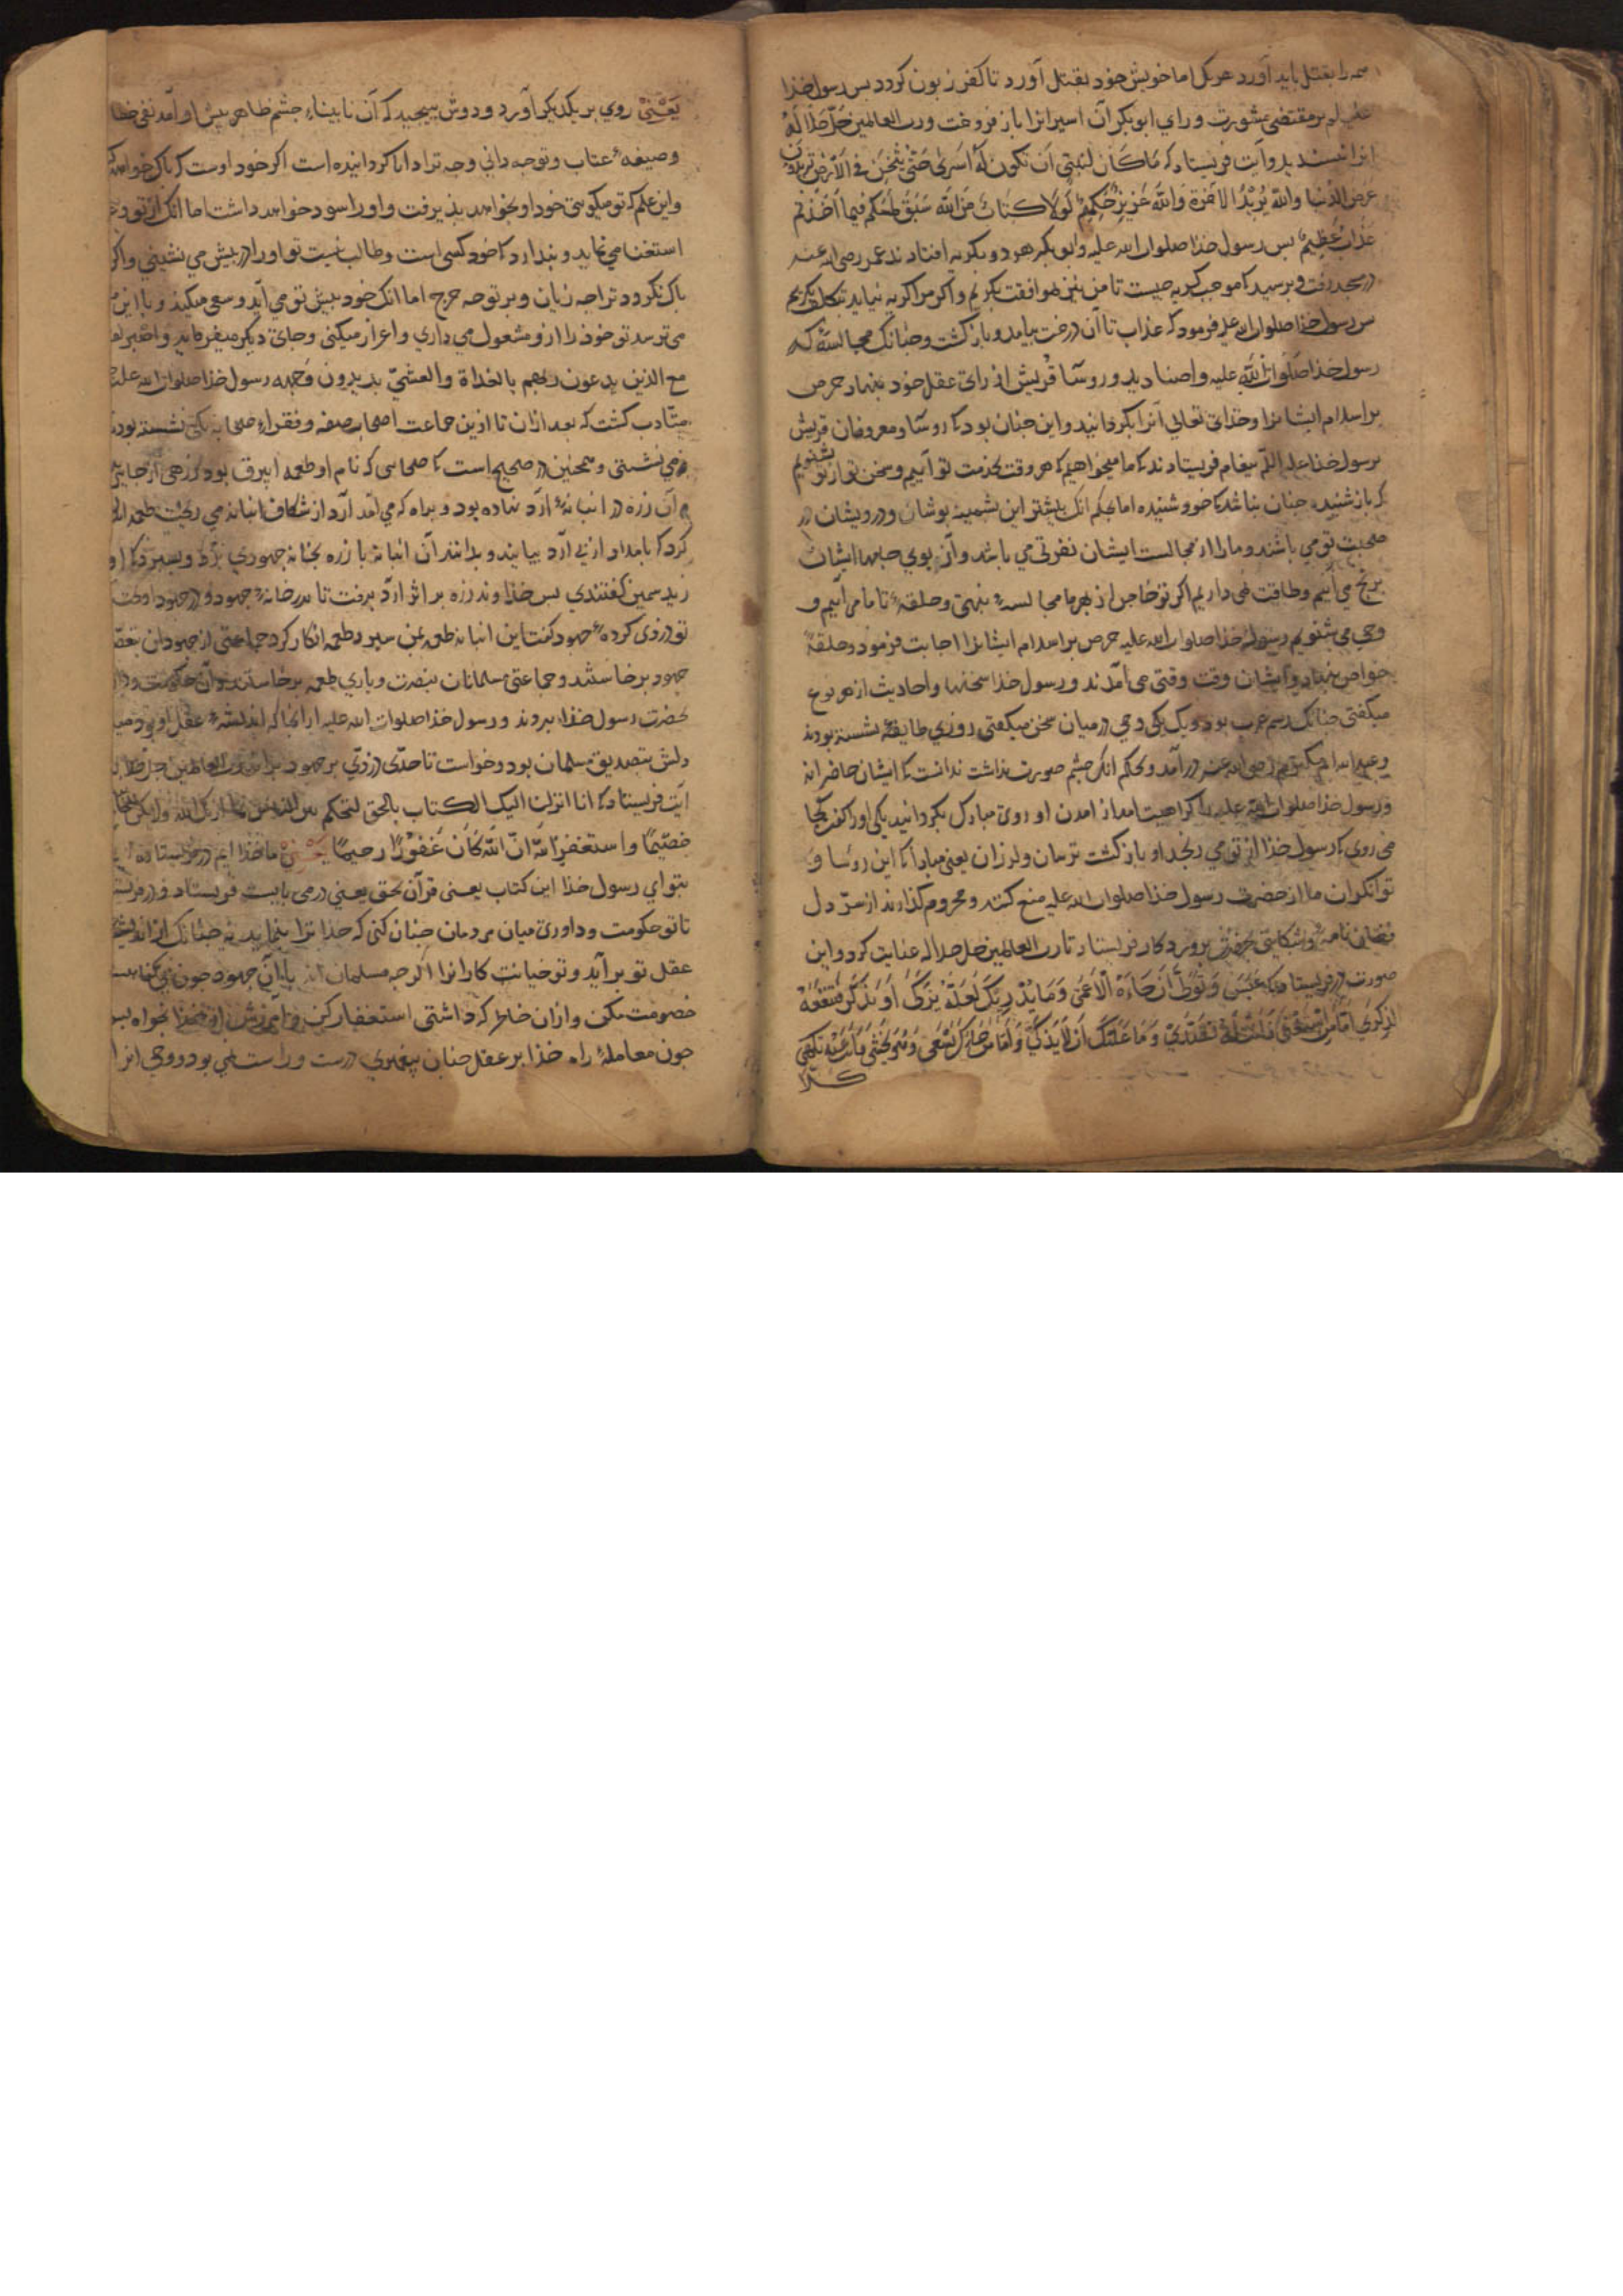 همه را بقتل باید آورد هر یکی اما خویش خود بقتل آورد تا کفر زبون کردد بس رسول خذا
علیه السلام بر مقتضی مشورت و رای ابوبکر آن اسیرانرا باز فروخت و رب العالمین جل جلاله
انرا نبسندید و آیت فریستاد که مَا كَانَ لنَبيٍ اَن تكونَ لَهُ اَسرى حَتّى يُثخِنَ في الاَرْضِ تريدون
عَرَضَ الدُنيا واللّه يُريْدُ الاخرَةَ وَاللّهُ عَزيزٌ حَكيمٌ لَولَا كتابٌ مِنَ اللّه سَبَقَ لَمَسَّكم فيما اَخَذتم
عَذابٌ عَظيمٌ بس رسول خذا صلوات الله علیه و ابوبکر هر دو بکریه افتادند عمر رضی الله عنه
در مسجد رفت و برسید کا موجب کریه جیست تا من نیز بموافقت بکریم و اکر مرا کریه نیاید بتکلف بکریم
بس رسول خذا صلوات الله علیه فرمود که عذاب تا آن درخت بیامد و باز کشت و جنانک مجالسهٔ که
رسول خذا صلوات اللّه علیه و اصنادید و روسآ قریش از رای عقل خود بنهاد حرص
بر اسلام ایشانرا و خذای تعالی آنرا بکردانید و این جنان بود کا روسآ و معروفان قریش
برسول خذا علیه السلم بیغام فریستادند کا ما میخواهیم که هر وقت بخدمت تو آییم و سخن تو از تو بشنویم
که باز شنیده جنان نباشد کا خود شنیده اما بحکم آنک بیشتر این بشمینه بوشان و درویشان در
صحبت تو می باشند و ما را از مجالست ایشان نفرتی می باشد و از بوی جامها ایشان
برنج می آییم و طاقت نمی داریم اکر تو خاص از بهر ما مجالسهٔ بنهی و حلقهٔ تا ما می آییم و
وحی می شنویم رسول خذا صلوات الله علیه حرص بر اسلام ایشانرا اجابت فرمود و حلقهٔ
بخواص بنهاد و ایشان وقت وقتی می آمدند و رسول خذا سخنها و احادیث از هر نوع
میکفتی جنانک رسم عرب بود و یک یکی وحی در میان سخن میکفتی روزی طایفهٔ نشسته بودند
و عبد الله ام مکتوم رضی الله عنه در آمد و بحکم آنک جشم صورت نداشت ندانست کا ایشان حاضرانه
و رسول خذا صلوات الله علیه را کراهیت آمد از آمدن او روی مبارک بکردانید یکی او را کفت کجا
می روی کا رسول خذا از تو می رنجد او باز کشت ترسان و لرزان یعنی مبادا کا این روسا و
توانکران ما را از حضرت رسول خذا صلوات الله علیه منع کنند و محروم کذارند از سرّ دل
بنهانی نامه و شکایتی بحضرت بروردکار فریستاد تا رب العالمین جل جلاله عنایت کرد و این
صورت در فریستاد که عَبَسَ وَتَوَلّى اَن جَاءَهُ الاَعْمَى وَمَا يُدْريكَ لَعَلّهُ يَزَّكّى اَو يَذّكّرُ فَتَنْفَعَهُ
الذِكرى اَمّا مَنِ اسْتَغْنى فَاَنْتَ لَهُ تَصَدّى وَمَا عَلَيْكَ اَن لَا يَزّكّى وَاَمّا مَن جَاءَكَ يَسْعَى وَهُوَ يَخْشى فَاَنتَ عَنْهُ تَلَهّى
كلا
یَعْنیْ روی بر یکدیکر آورد و دوش بیجید که آن نابیناء جشم ظاهر بیش او آمد نفی خطا
و صیغهٔ عتاب و توجه دانی و جه ترا دانا کردانیده است اکر خود اوست که باک خواهد
و این علم که تو میکوئی خود او بخواهد بذیرفت و او را سود خواهد داشت اما آنک از تو و
استغنا می نماید و بندارد کا خود کسی است و طالب نیست تو او را در بیش می نشینی و اکر
باک نکردد ترا جه زیان و بر تو جه حرج اما آنک خود ببیش تو می آید و سعی میکند و با این
می ترسد تو خوذ را ازو مشغول می داری و اعراض میکنی و جای دیکر میفرماید واصبر نفسك
مع الذين يدعون ربهم بالغداة والعشيّ يريدون وَجهه رسول خذا صلوات الله علیه
متأدب کشت که بعد ازان تا ازین جماعت اصحاب صفه و فقراء صحابه یکی نشسته بودی
می نشستی و همجنین در صحیح است کا صحابی که نام او طعمه ابیرق بود زرهی از جایی
و آن زره در انبانهٔ آرد نهاده بود و براه که می آمد آرد از شکاف انبانه می ریخت طعمه اند
کرد کا بامداد از بی آرد بیایند و بدانند آن انبانه با زره بخانه جهودی برد و بسبرد کا او
زید سمین کفتندی بس خذاوند زره بر اثر آرد برفت تا بدر خانهٔ جهود و در جهود اوخت
تو دزدی کردهٔ جهود کفت این انبانه طعمه بمن سبرد طعمه انکار کرد جماعتی از جهودان بتعصّب
جهود برخاستند و جماعتی مسلمانان بنصرت و یاری طعمه برخاستند و آن حکومت و داور
بحضرت رسول خذا ببردند و رسول خذا صلوات الله علیه از آنجا که اندیشهٔ عقل او بود میل
دلش بتصدیق مسلمان بود و خواست تا حدّی دزدی بر جهود براند رب العالمین جل جلاله
آیت فریستاد که انا انزلنا اليك الكتاب بالحق لتحكم بين الناس بما اريك اللّه ولا تكن للخائنين
خصيمًا واستغفرِ اللّه انّ اللّه كَانَ غَفُوْرًا رحيمًا یَعْنیْ ما خذا ایم در فریستاده ایم
بتو ای رسول خذا این کتاب یعنی قرآن بحق یعنی در می بایست فریستاد و در فریست
تا تو حکومت و داوری میان مردمان جنان کنی که خذا ترا بنماید نه جنانک از اندیشهٔ
عقل تو بر آید و تو خیانت کارانرا اکر جه مسلمان اند با آن جهود جون بی کناهست
خصومت مکن و ازان خاطر که داشتی استغفار کن و آمرزش از خذا بخواه بس
جون معاملهٔ راه خذا بر عقل جنان بیغمبری درست و راست نمی بود و وحی انرا